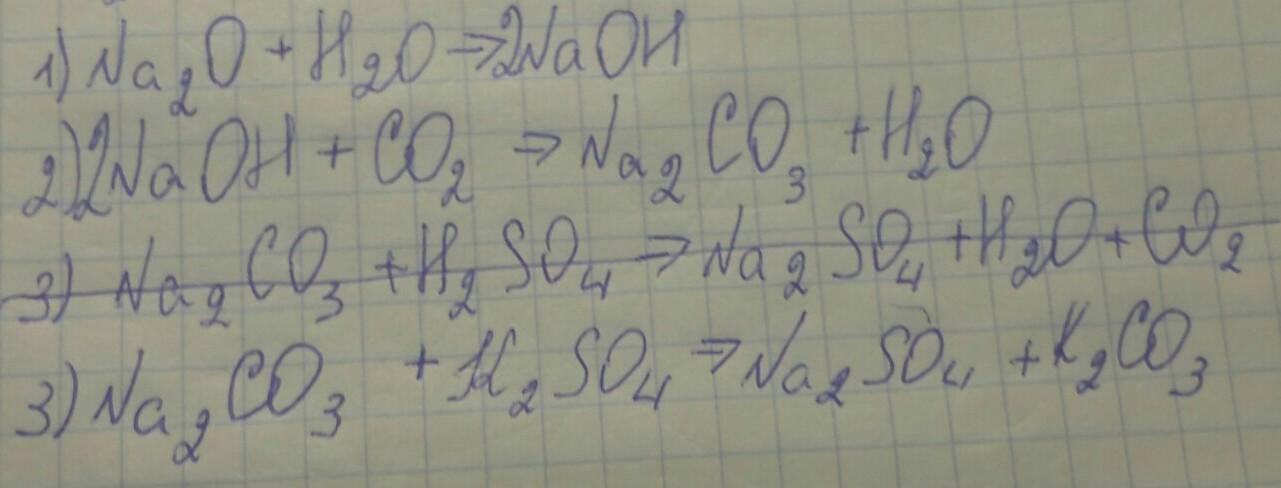 1) Na₂O + H₂O → 2NaOH
2) 2NaOH + CO₂ → Na₂CO₃ + H₂O
3) Na₂CO₃ + H₂SO₄ → Na₂SO₄ + H₂O + CO₂
3) Na₂CO₃ + K₂SO₄ → Na₂SO₄ + K₂CO₃